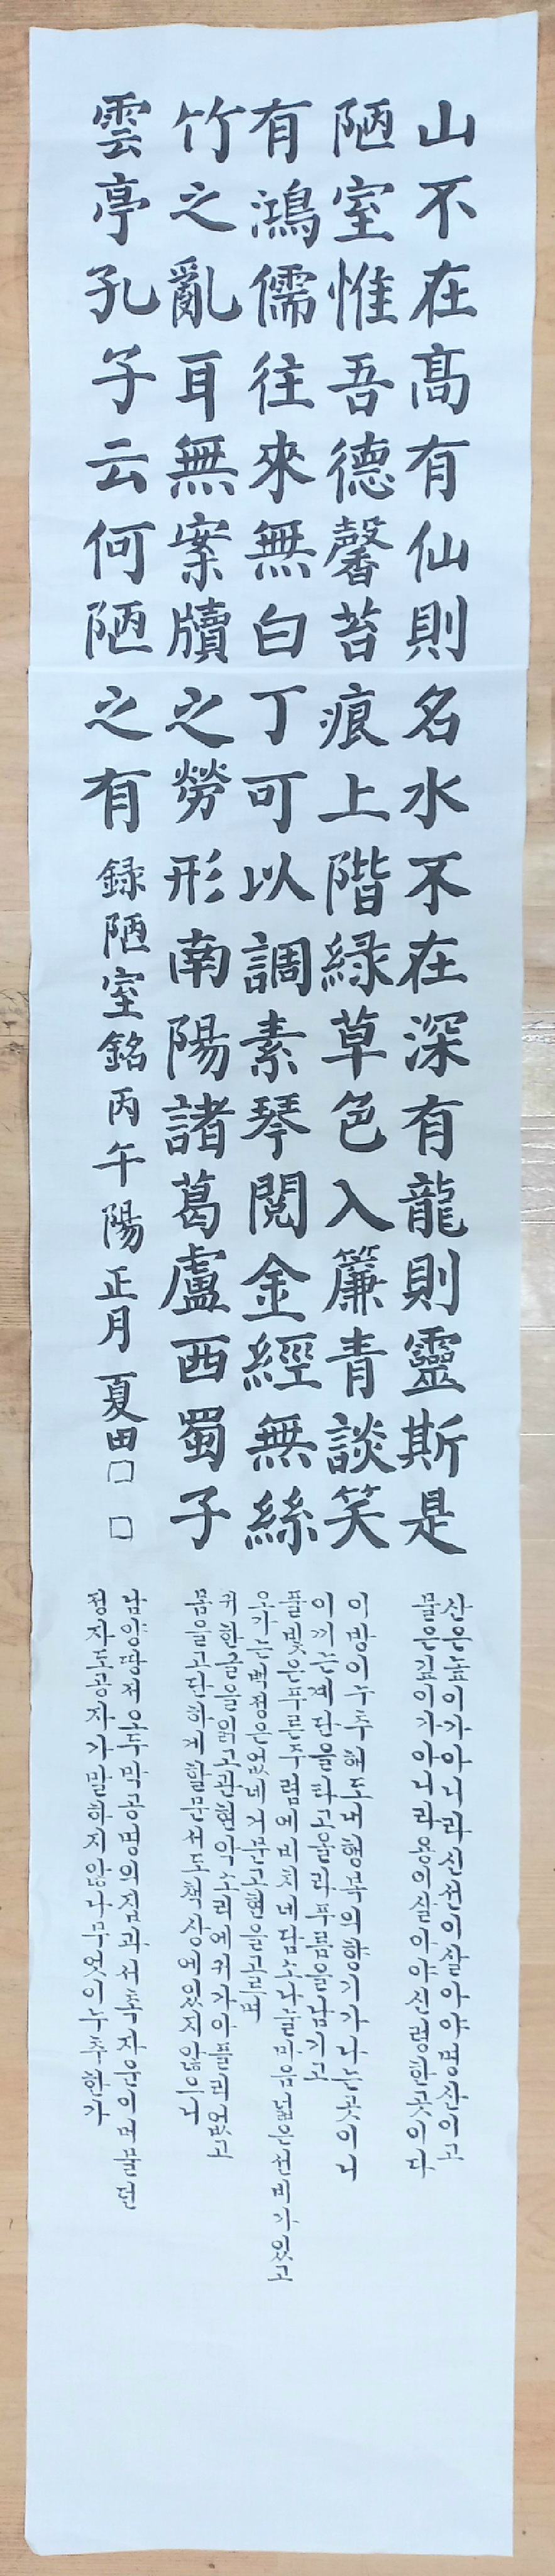 山不在高有仙則名水不在深有龍則靈斯是
陋室惟吾德馨苔痕上階緑草色入簾青談笑
有鴻儒往來無白丁可以調素琴閱金經無絲
竹之亂耳無案牘之勞形南陽諸葛盧西蜀子
雲亭孔子云何陋之有 録陋室銘 丙午陽正月 夏田
산은높이가아니라신선이살아야명산이고
물은깊이가아니라용의살아야신령한곳이다
이방이누추해도내행목의향기가나는곳이니
이끼는계단을타고올라푸름을남기고
풀빛은푸른주렴에비치네담소나눌마음넓은선비가있고
오가는백정은없네거문고현을고르며
귀한글을읽고관현악소리에귀가아플리없고
몸을고단하게할문서도책상에있지않으니
남양땅척오두막공명의집과서촉자운이머물던
정자도공자가말하지않나무엇이누추한가